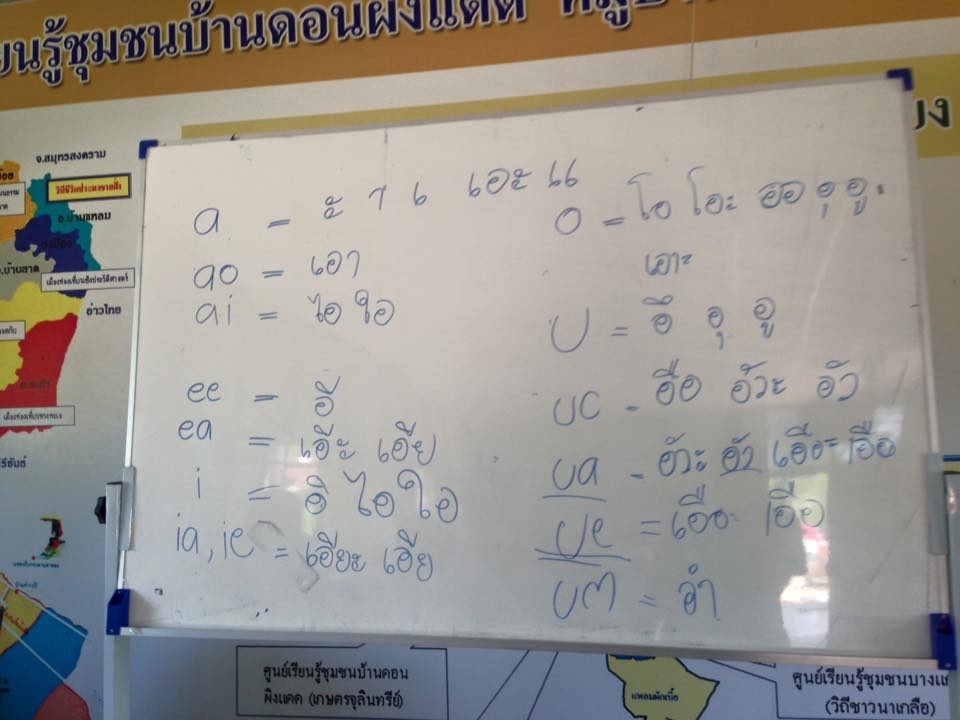 ยนรู้ชุมชนบ้านดอนผิงแดด
จ.สมุทรสงคราม
วิถีชีวิตประมงชายฝั่ง
อ.บ้านแหลม
.บ้านลาด
เมืองเพชรเมืองประวัติศาสตร์
อ่าวไทย
a = ะ า เ เอะ แ
ao = เอา
ai = ไอ ใอ
ee = อี
ea = เอีะ เอีย
i = อิ ไอ ใอ
ia, ie = เอียะ เอีย
o = โอ โอะ ออ อุ อู
เอาะ
U = อึ อุ อู
uc - อือ อัวะ อัว
ua - อัวะ อัว เอือะ เอือ
Ue = เอือะ เอือ
um = อำ
ศูนย์เรียนรู้ชุมชนบ้านดอน
ผิงแดด (เกษตรจุลินทรีย์)
แหลมผักเบี้ย
ศูนย์เรียนรู้ชุมชนบางแ
(วิถีชาวนาเกลือ)